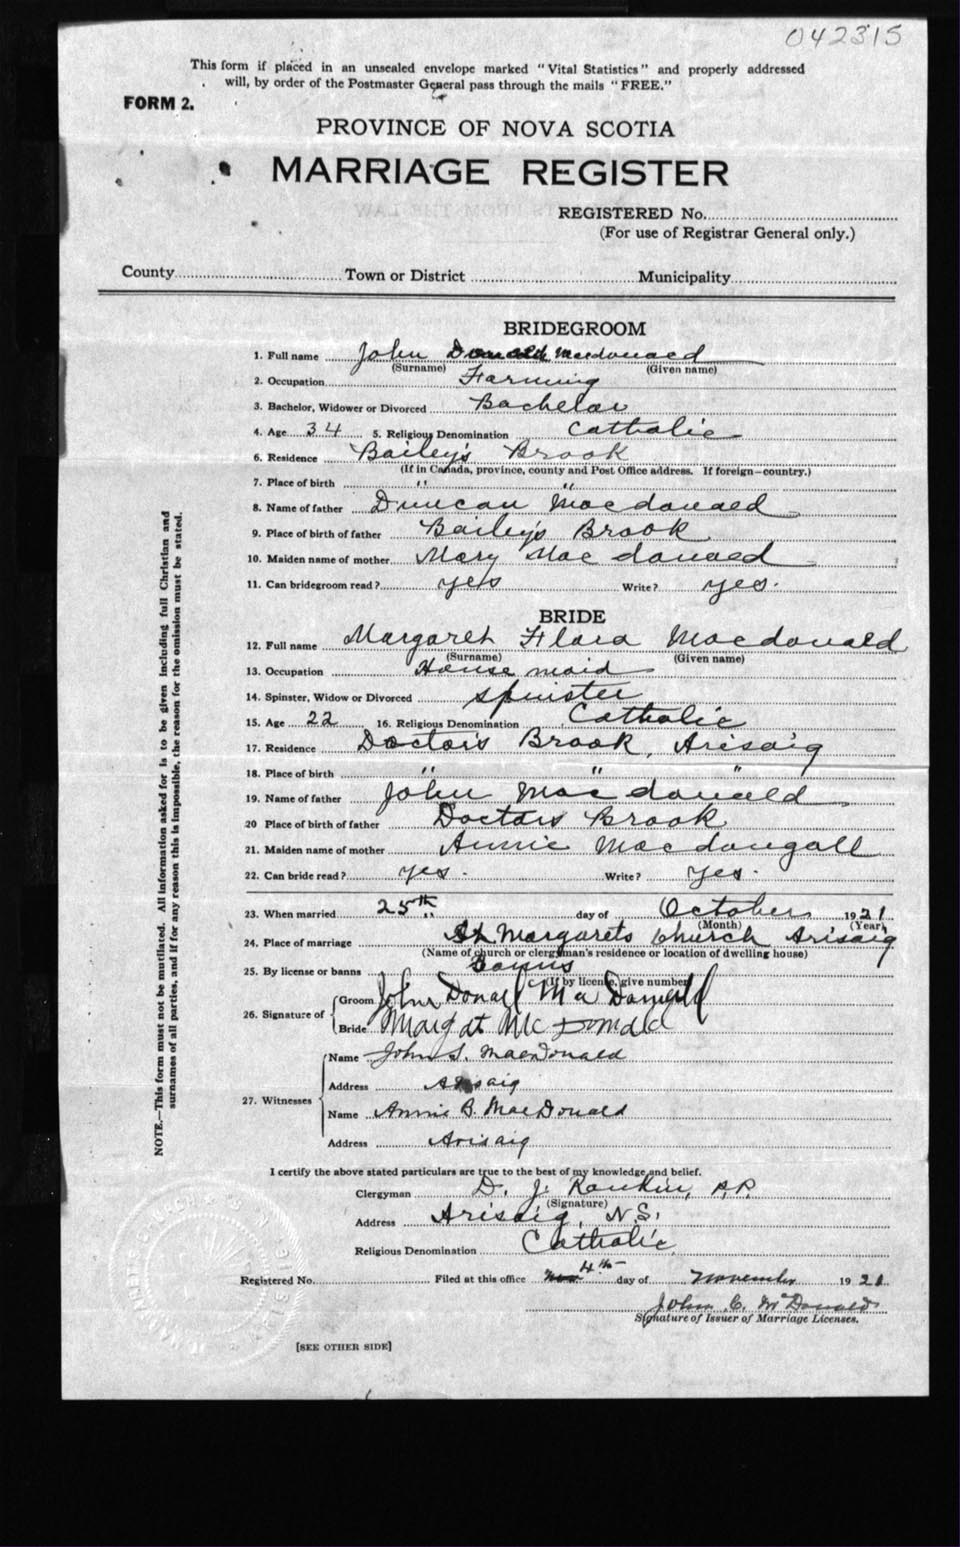 042315
This form if placed in an unsealed envelope marked "Vital Statistics" and properly addressed
will, by order of the Postmaster General pass through the mails "FREE."
FORM 2.
PROVINCE OF NOVA SCOTIA
MARRIAGE REGISTER
REGISTERED No.
(For use of Registrar General only.)
County Town or District Municipality
BRIDEGROOM
1. Full name John Donald Macdonald
(Surname) (Given name)
2. Occupation Farming
3. Bachelor, Widower or Divorced Bachelor
4. Age 34 5. Religious Denomination Catholic
6. Residence Bailey's Brook
(If in Canada, province, county and Post Office address. If foreign—country.)
7. Place of birth " "
8. Name of father Duncan Macdonald
9. Place of birth of father Bailey's Brook
10. Maiden name of mother Mary Macdonald
11. Can bridegroom read? yes Write? yes.
BRIDE
12. Full name Margaret Flora Macdonald
(Surname) (Given name)
13. Occupation House maid
14. Spinster, Widow or Divorced spinster
15. Age 22 16. Religious Denomination Catholic
17. Residence Doctors Brook, Arisaig
18. Place of birth " " "
19. Name of father John Macdonald
20 Place of birth of father Doctors Brook
21. Maiden name of mother Annie Macdougall
22. Can bride read? yes. Write? yes.
23. When married 25th day of October 1921
(Month) (Year)
24. Place of marriage St Margarets Church Arisaig
(Name of church or clergyman's residence or location of dwelling house)
25. By license or banns Banns
(If by license, give number)
26. Signature of
Groom John Donald MacDonald
Bride Margat McDonald
27. Witnesses
Name John S. MacDonald
Address Arisaig
Name Annie B. MacDonald
Address Arisaig
I certify the above stated particulars are true to the best of my knowledge and belief.
Clergyman D. J. Rankin, P.P.
(Signature)
Address Arisaig, N.S.
Religious Denomination Catholic
Registered No. Filed at this office 4th day of November 1921
John C. McDonald
Signature of Issuer of Marriage Licenses.
[SEE OTHER SIDE]
NOTE.—This form must not be mutilated. All information asked for is to be given including full Christian and
surnames of all parties, and if for any reason this is impossible, the reason for the omission must be stated.